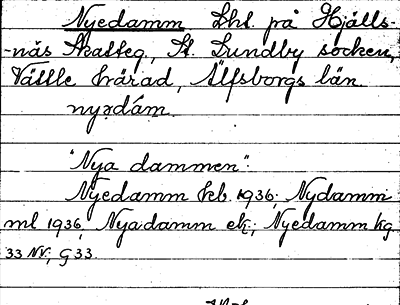 Nyedamm Lht. på Hjälls-
-näs Skatteg, St. Lundby socken,
Vättle härad, Älfsborgs län.
nyədám.
"Nya dammen".
Nyedamm Jeb. 1936; Nydamm
ml 1936, Nyadamm ek.; Nyedamm kg
33 NV; G 33.